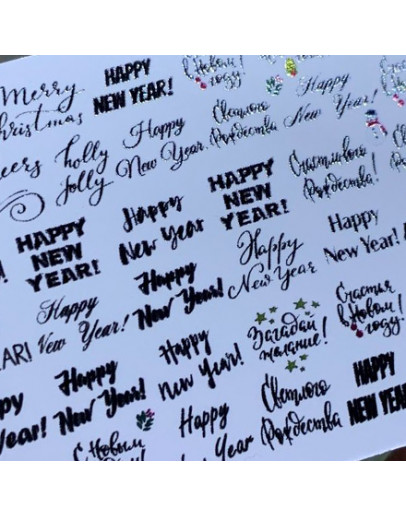 Merry
Christmas
HAPPY
NEW YEAR!
с Новым
годом!
Happy
New Year!
holly
jolly
Happy
New Year
Светлого
Рождества
HAPPY
NEW
YEAR!
Счастливого
Рождества!
HAPPY
NEW
YEAR!
Happy
New Year
Happy
New Year!
Happy
New Year!
Happy
New Year
Happy
New Year!
Счастья
в Новом
году!
Загадай
желание!
Happy
New Year!
Happy
New Year!
HAPPY
NEW YEAR!
Светлого
Рождества
Happy
New Year
С Новым